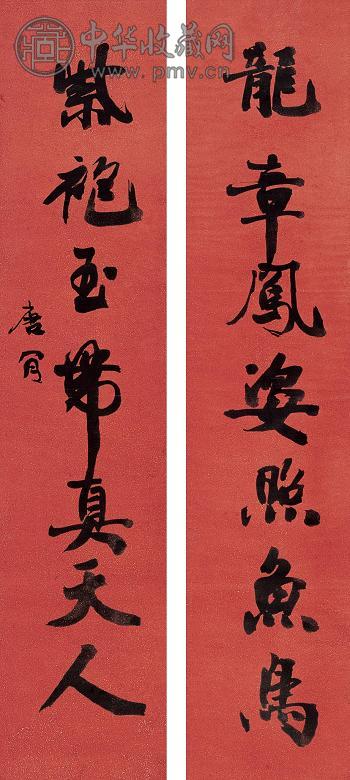 中华收藏网
www.pmv.cn
龍章鳳姿照魚鳥
紫袍玉帶真天人
唐肯